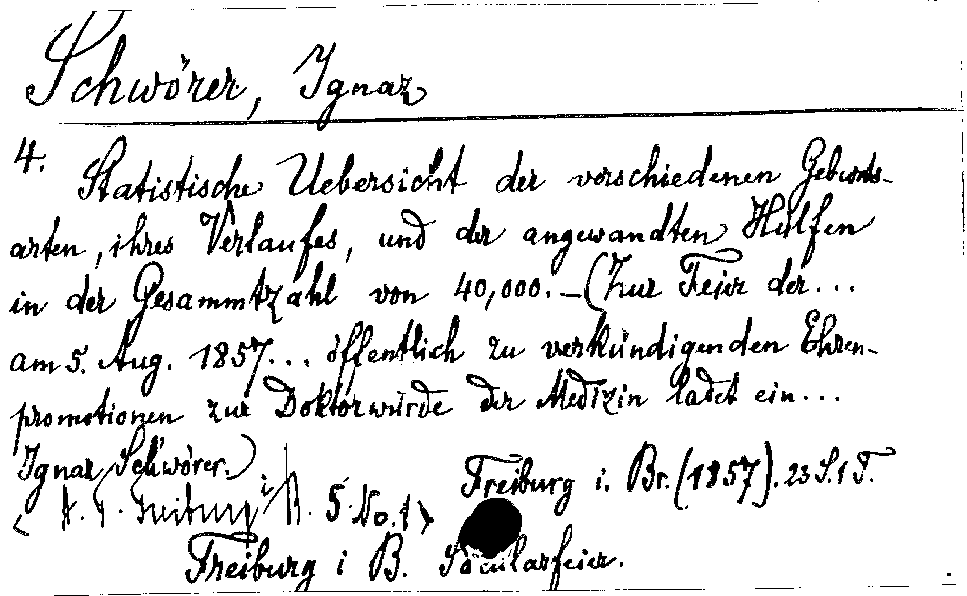 Schwörer, Ignaz
4. Statistische Uebersicht der verschiedenen Geburts-
arten, ihres Verlaufes, und der angewandten Hülfen
in der Gesammtzahl von 40,000. – (Zur Feier der ...
am 5. Aug. 1857... öffentlich zu verkündigenden Ehren-
promotionen zur Doktorwürde der Medizin ladet ein...
Ignaz Schwörer.)
Freiburg i. Br. (1857). 23 S. 1 T.
Freiburg i B. 5 No. 1>
Freiburg i B. Säcularfeier.